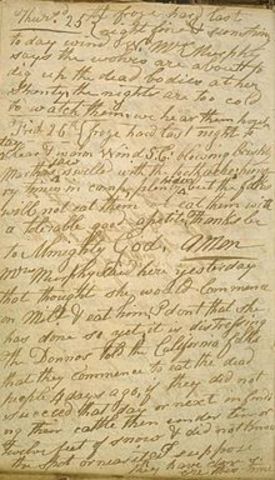 Thursd. 25th froze hard last
night fine & sunshine
to day wind W. Mrs Murphy
says the wolves are about to
dig up the dead bodies at her
shanty, the nights are too cold
to watch them, we hear them howl
Frid 26th froze hard last night to
day clear & warm Wind S.E. blowing briskly
Marthas jaw swelled with the toothache; hungry
times in camp, plenty hides but the folks
will not eat them we eat them with
a tolerable good apetite. Thanks be
to Almighty God. Amen
Mrs Murphy said here yesterday
that thought she would commence
on Milt & eat him. I dont that she
has done so yet, it is distressing
The Donnos told the California folks
that they commence to eat the dead
people 4 days ago, if they did not
succeed that day or next in find
ing their cattle then under ten or
twelve feet of snow & did not know
the spot or near it, I suppose
they have done so
ere this time